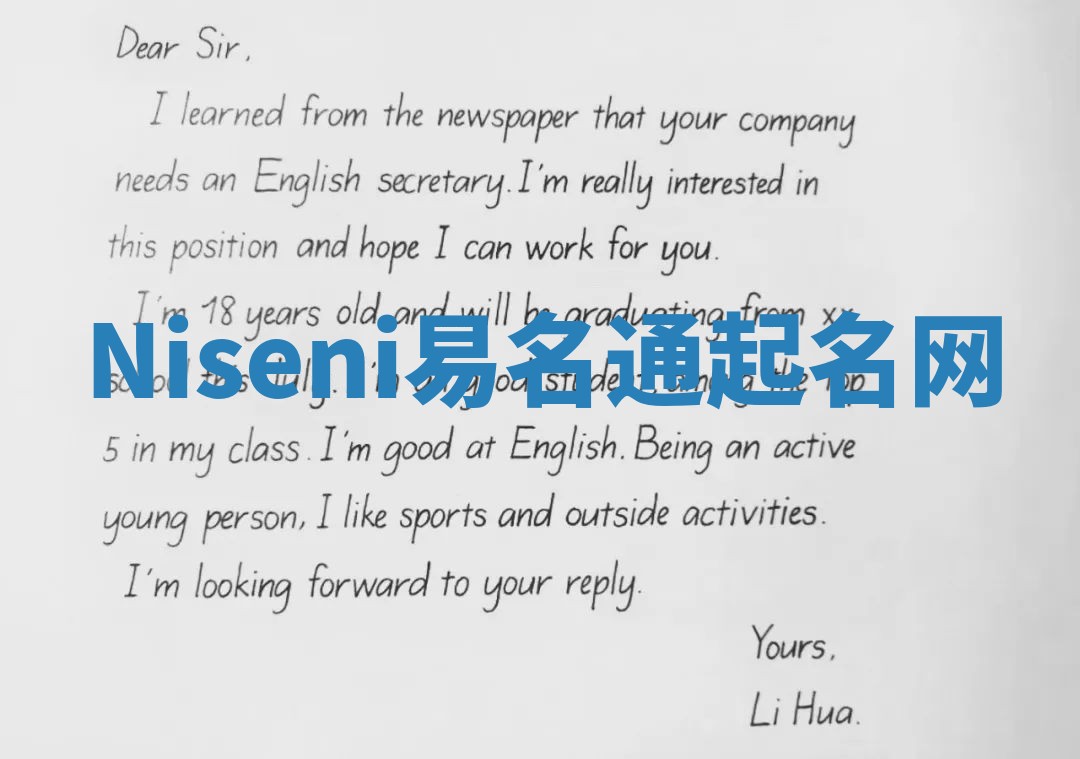 Dear Sir,
I learned from the newspaper that your company
needs an English secretary. I'm really interested in
this position and hope I can work for you.
I'm 18 years old and will be graduating from xx
Niseni易名通起名网
school this July. I'm a good student among the top
5 in my class. I'm good at English. Being an active
young person, I like sports and outside activities.
I'm looking forward to your reply.
Yours,
Li Hua.